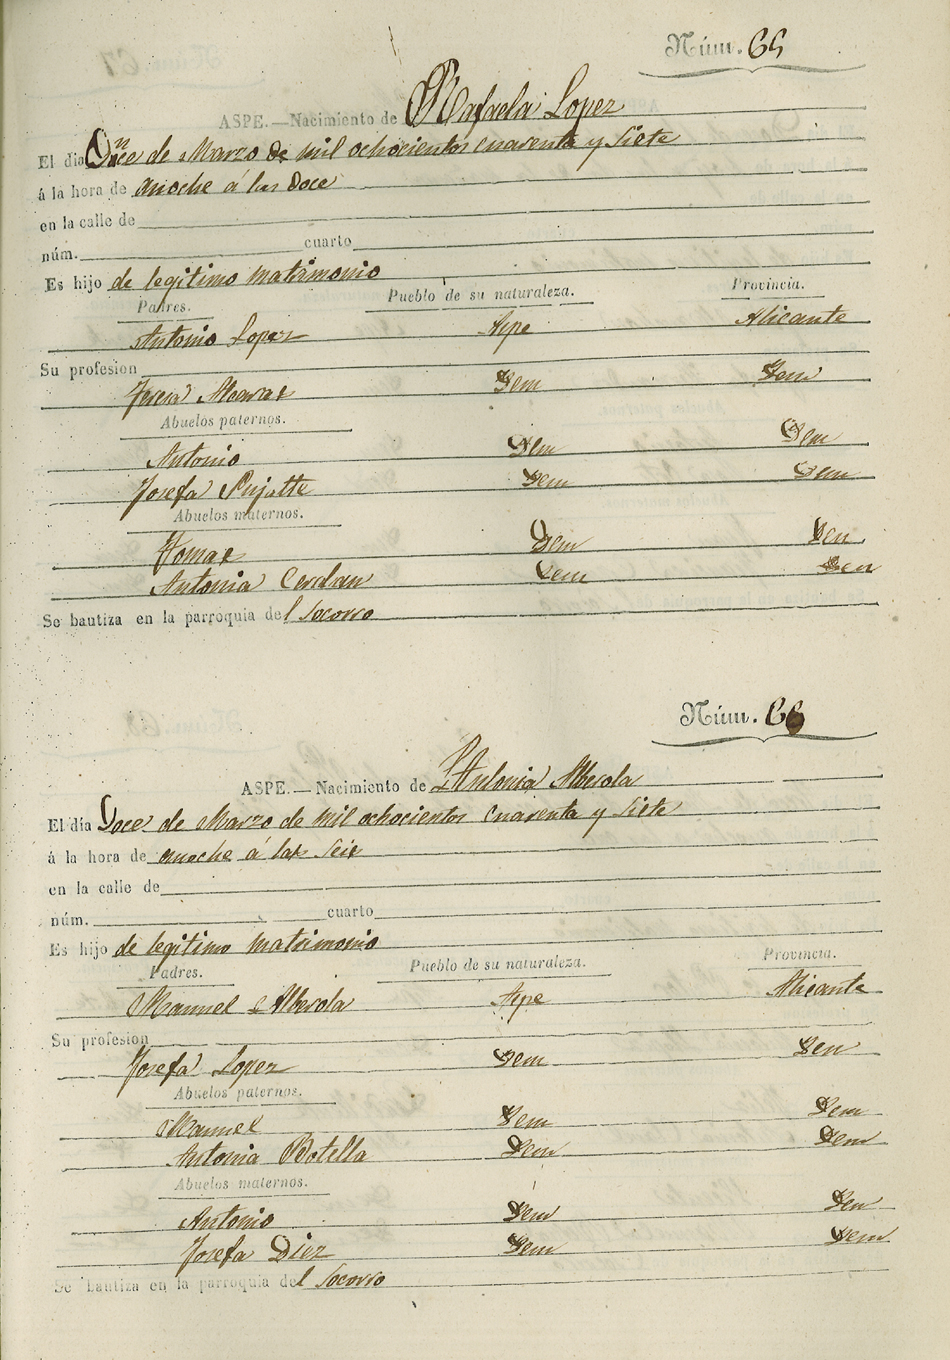 Núm. 65
ASPE.—Nacimiento de Rafaela Lopez
El dia Doce de Marzo de mil ochocientos cuarenta y Siete
á la hora de anoche á las doce
en la calle de
núm. cuarto
Es hijo de legitimo matrimonio
Padres. Pueblo de su naturaleza. Provincia.
Antonio Lopez Aspe Alicante
Su profesion
Teresa Ydem Ydem
Abuelos paternos.
Antonio Ydem Ydem
Josefa Pujalte Ydem Ydem
Abuelos maternos.
Tomas Ydem Ydem
Antonia Cerdan Ydem Ydem
Se bautiza en la parroquia del Socorro
Núm. 66
ASPE.—Nacimiento de Antonia Alberola
El dia Doce de Marzo de mil ochocientos cuarenta y Siete
á la hora de anoche á las Seis
en la calle de
núm. cuarto
Es hijo de legitimo matrimonio
Padres. Pueblo de su naturaleza. Provincia.
Manuel Alberola Aspe Alicante
Su profesion
Josefa Lopez Ydem Ydem
Abuelos paternos.
Manuel Ydem Ydem
Antonia Botella Ydem Ydem
Abuelos maternos.
Antonio Ydem Ydem
Josefa Diez Ydem Ydem
Se bautiza en la parroquia del Socorro